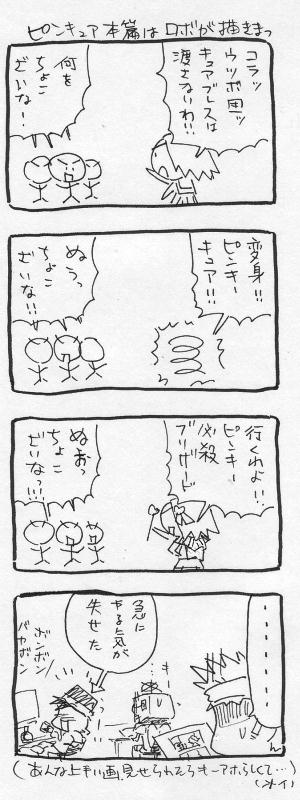 ピンキュア本篇はロボが描きまっ
コラッ
ウツボ団ッ
キュアブレスは
渡さないわ!!
何を
ちょこ
ざいな!
変身!!
ピンキー
キュア!!
ぬうっ
ちょこ
ざいな!!
行くわよ!!
ピンキー
必殺
ブリザード
ぬおっ
ちょこ
ざいなっ!!
急に
やる気が
失せた
ボンボン
バカボン
(あんな上手い画見せられたらもーアホらしくて…)